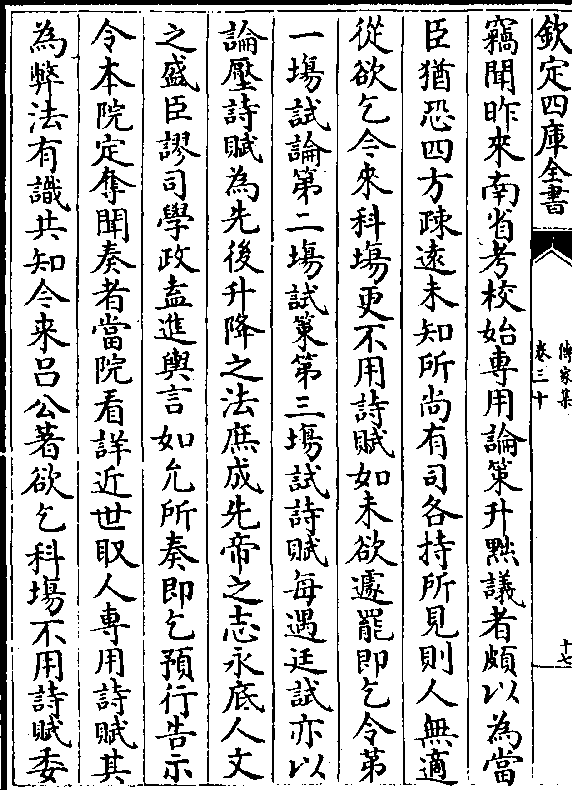 欽定四庫全書
傳家集
卷三十
十七
竊聞昨來南省考校始專用論策升黜議者頗以為當
臣猶恐四方疎遠未知所尚有司各持所見則人無適
從欲乞今來科場更不用詩賦如未欲遽罷即乞令第
一塲試論第二塲試策第三塲試詩賦每遇廷試亦以
論壓詩賦為先後升降之法庶成先帝之志永底人文
之盛臣謬司學政盍進輿言如允所奏即乞預行告示
令本院定奪聞奏者當院看詳近世取人專用詩賦其
為弊法有識共知今来吕公著欲乞科場不用詩賦委